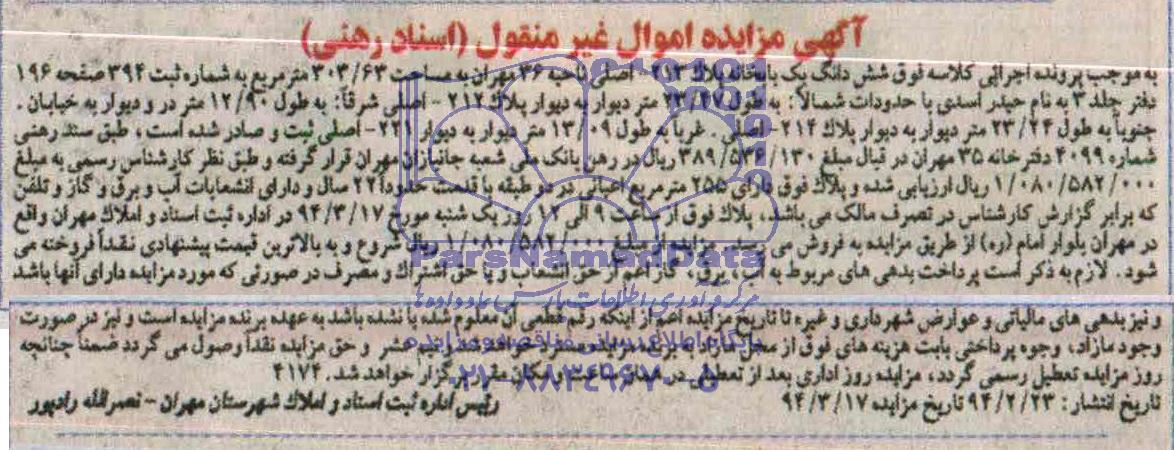 آگهی مزایده اموال غیر منقول (اسناد رهنی)
به موجب پرونده اجرائی کلاسه فوق شش دانگ یک بابخانه پلاک ۲۱۳ - اصلی ناحیه ۳۶ مهران به مساحت ۳۰۳/۶۳ مترمربع به شماره ثبت ۳۹۴ صفحه ۱۹۶
دفتر جلد ۳ به نام حیدر اسدی با حدودات شمالاً: به طول ۲۳/۲۷ متر دیوار به دیوار پلاک ۲۱۲ - اصلی شرقاً: به طول ۱۲/۹۰ متر در و دیوار به خیابان.
جنوباً به طول ۲۳/۲۴ متر دیوار به دیوار پلاک ۲۱۴- اصلی. غرباً به طول ۱۳/۰۹ متر دیوار به دیوار ۲۲۱- اصلی ثبت و صادر شده است، طبق سند رهنی
شماره ۴۰۹۹ دفترخانه ۳۵ مهران در قبال مبلغ ۳۸۹/۵۳۶/۱۳۰ ریال در رهن بانک ملی شعبه جانبازان مهران قرار گرفته و طبق نظر کارشناس رسمی به مبلغ
۱/۰۸۰/۵۸۲/۰۰۰ ریال ارزیابی شده و پلاک فوق دارای ۲۵۵ مترمربع اعیانی در دو طبقه با قدمت حدوداً ۲۲ سال و دارای انشعابات آب و برق و گاز و تلفن
که برابر گزارش کارشناس در تصرف مالک می باشد، پلاک فوق از ساعت ۹ الی ۱۲ روز یک شنبه مورخ ۹۴/۳/۱۷ در اداره ثبت اسناد و املاک مهران واقع
در مهران بلوار امام (ره) از طریق مزایده به فروش می رسد. مزایده از مبلغ ۱/۰۸۰/۵۸۲/۰۰۰ ریال شروع و به بالاترین قیمت پیشنهادی نقداً فروخته می
شود. لازم به ذکر است پرداخت بدهی های مربوط به آب، برق، گاز اعم از حق انشعاب و یا حق اشتراک و مصرف در صورتی که مورد مزایده دارای آنها باشد
و نیز بدهی های مالیاتی و عوارض شهرداری و غیره تا تاریخ مزایده اعم از اینکه رقم قطعی آن معلوم شده یا نشده باشد به عهده برنده مزایده است و نیز در صورت
وجود مازاد، وجوه پرداختی بابت هزینه های فوق از محل مازاد به برنده مزایده مسترد خواهد شد نیم عشر و حق مزایده نقداً وصول می گردد ضمناً چنانچه
روز مزایده تعطیل رسمی گردد، مزایده روز اداری بعد از تعطیلی در همان ساعت و مکان مقرر برگزار خواهد شد. ۴۱۷۴
تاریخ انتشار: ۹۴/۲/۲۳ تاریخ مزایده ۹۴/۳/۱۷
رئیس اداره ثبت اسناد و املاک شهرستان مهران - نصرالله رادپور
ParsNamadData
مرکز فرآوری اطلاعات پارس نماد داده ها
پایگاه اطلاع رسانی مناقصه و مزایده
۰۲۱-۸۸۳۴۹۶۷۰-۵